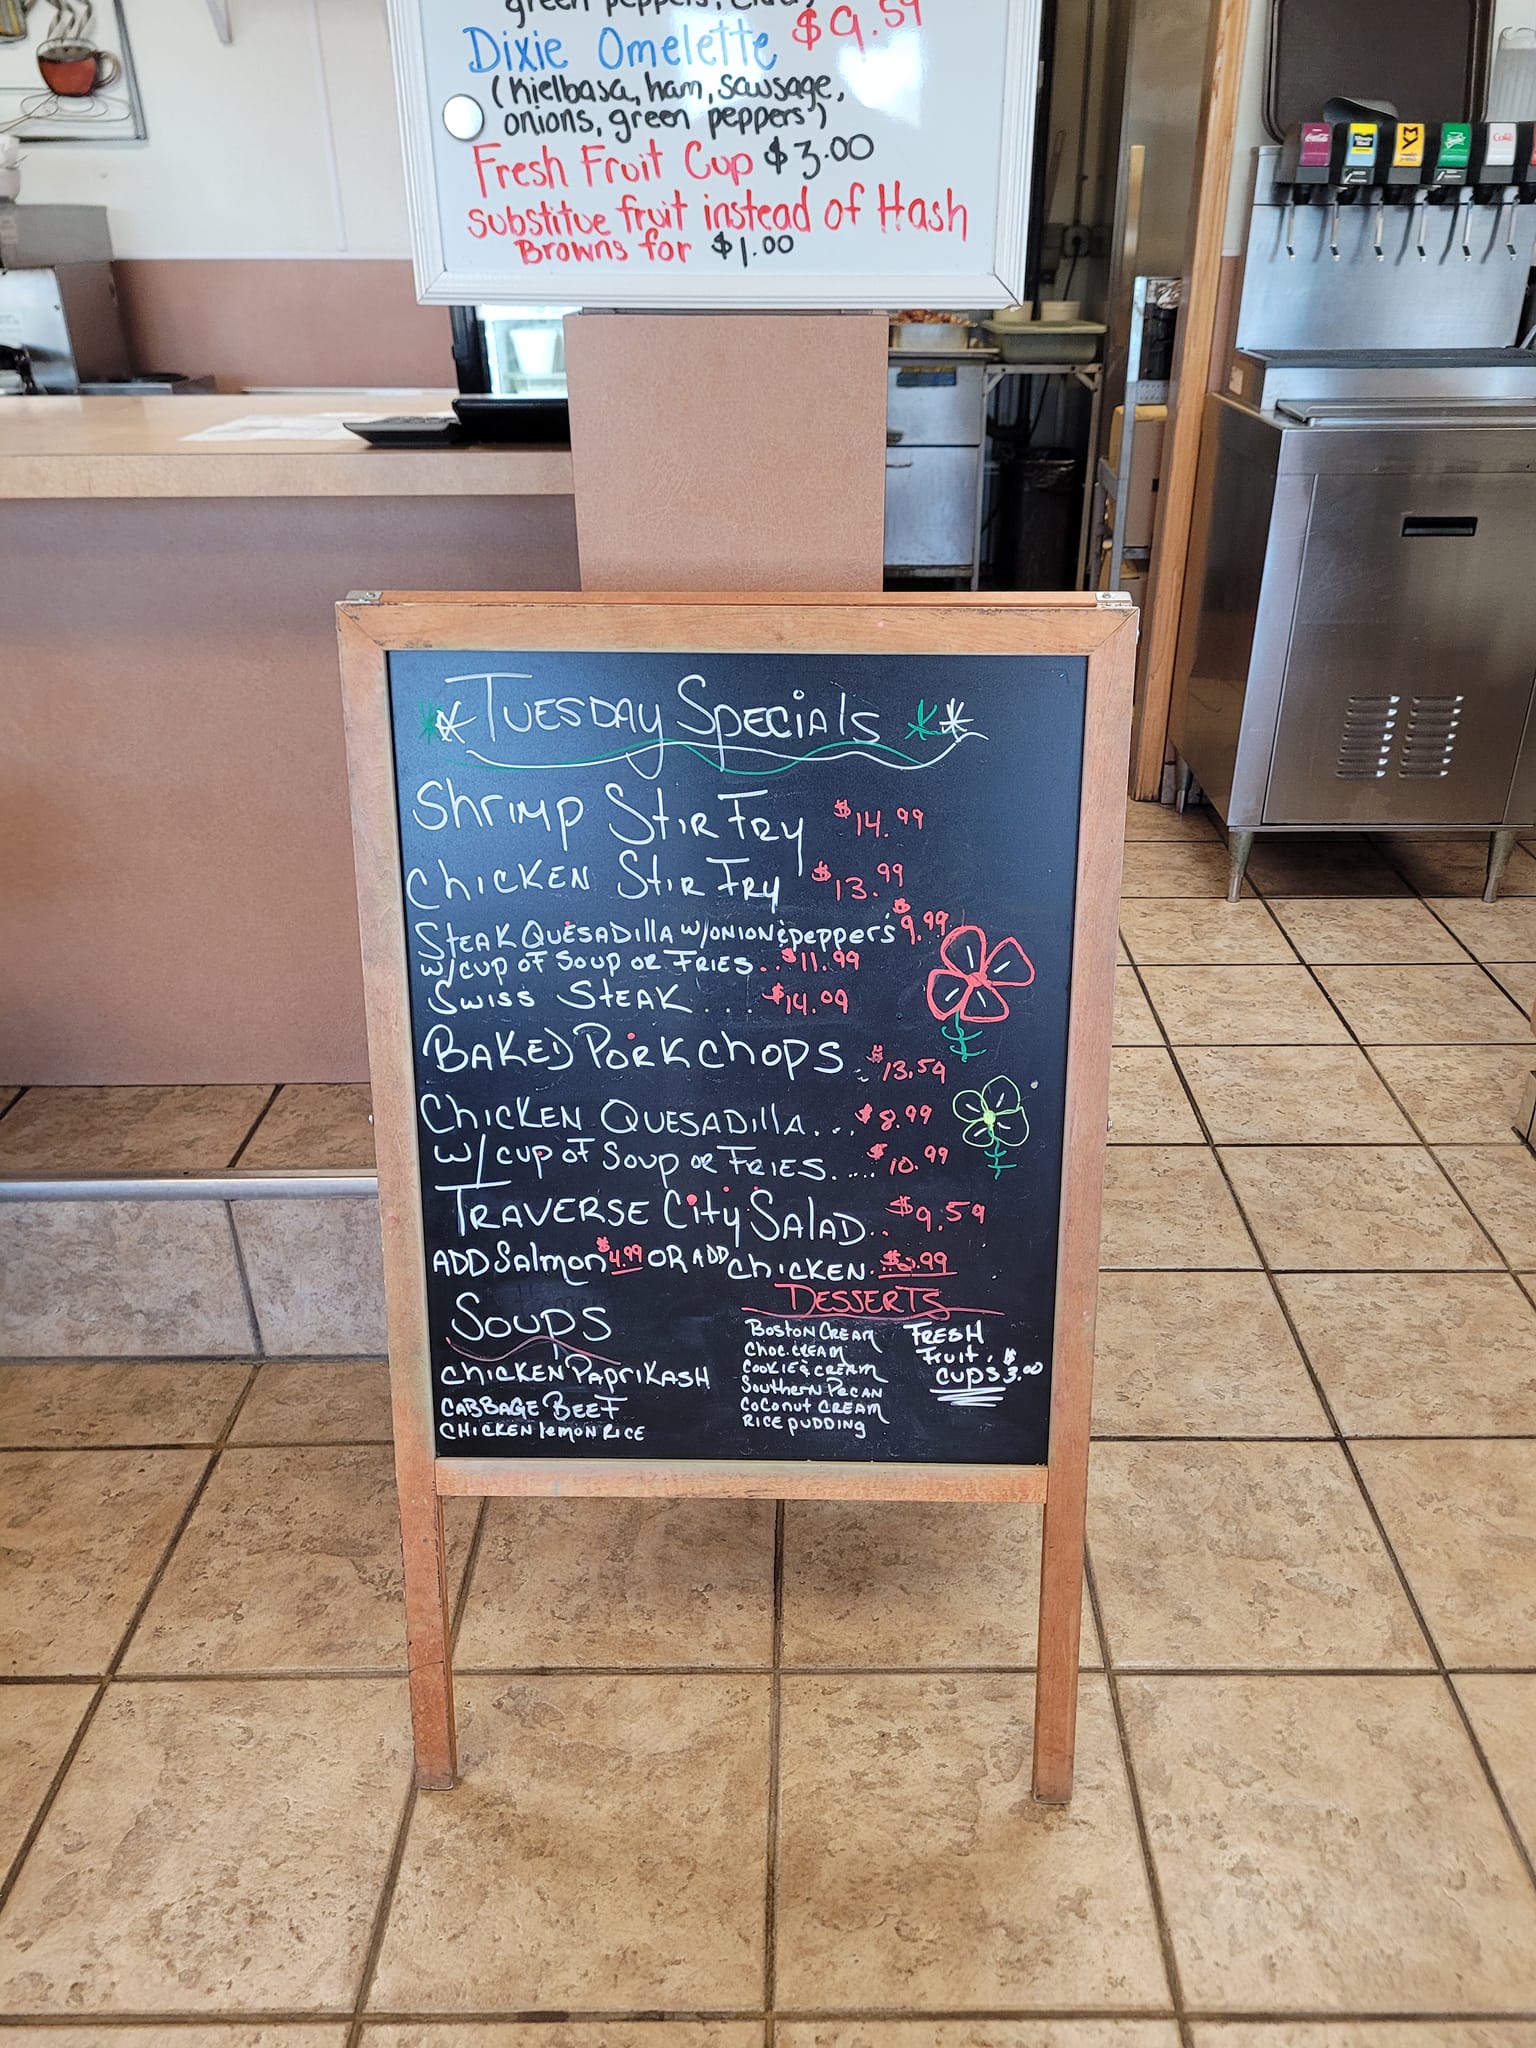 green peppers,
Dixie Omelette $9.59
(Kielbasa, ham, sausage,
onions, green peppers)
Fresh Fruit Cup $3.00
substitue fruit instead of Hash
Browns for $1.00
Tuesday Specials
Shrimp Stir Fry $14.99
Chicken Stir Fry $13.99
Steak Quesadilla w/onion & peppers $9.99
w/cup of soup or fries.. $11.99
Swiss Steak... $14.09
Baked Pork Chops .. $13.59
Chicken Quesadilla... $8.99
w/cup of Soup or Fries.... $10.99
Traverse City Salad.. $9.59
Add Salmon $4.99 or add chicken.
Soups
Chicken Paprikash
Cabbage Beef
Chicken lemon Rice
Desserts
Boston Cream
Choc. Cream
Cookie & Cream
Southern Pecan
Coconut Cream
Rice pudding
Fresh
Fruit. $
cups 3.00